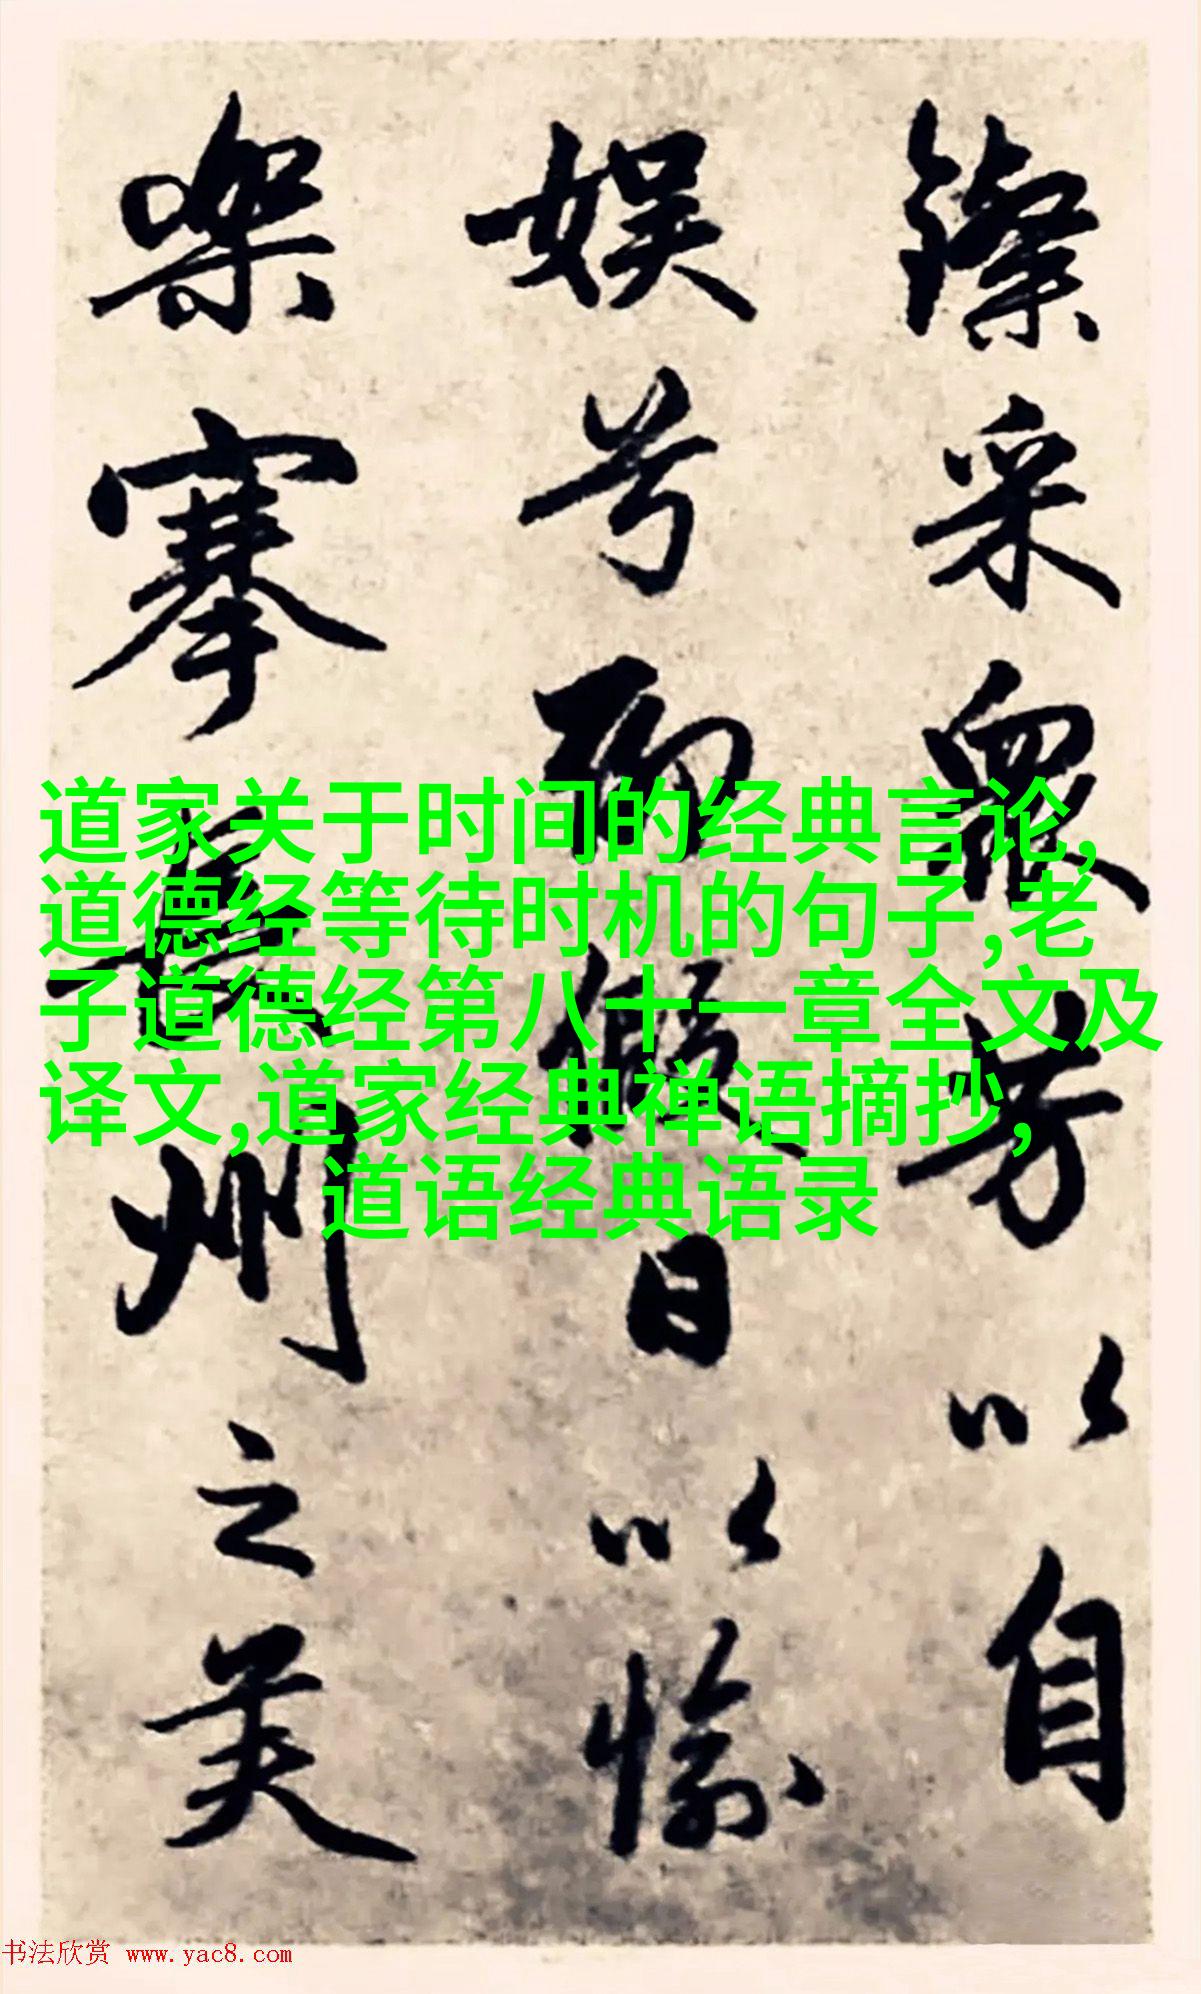 鑗采众芳以自
娱兮聊假日以愉
乐搴长州之美
道家关于时间的经典言论,
道德经等待时机的句子,老
子道德经第八十一章全文及
译文,道家经典禅语摘抄,
道语经典语录
书法欣赏 www.yac8.com